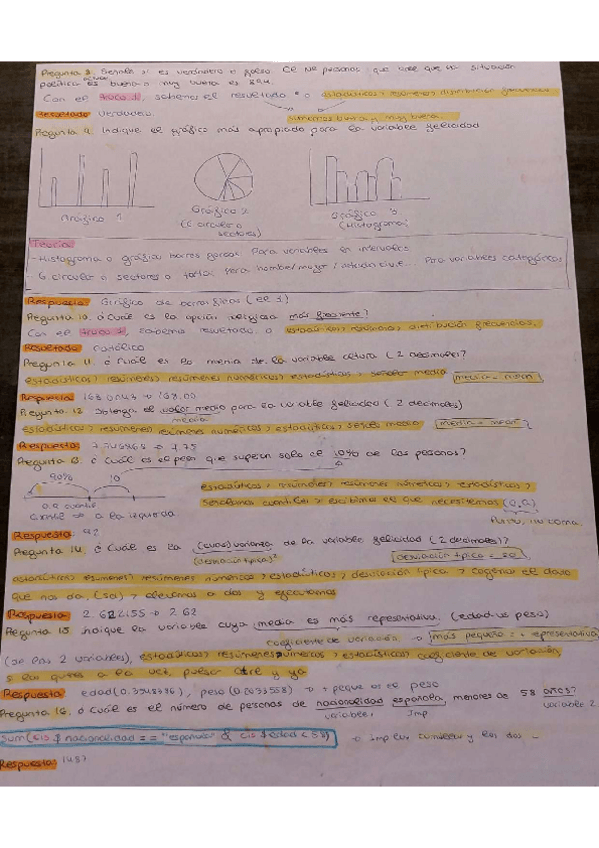 Pregunta 8. Señale si es verdadero o falso. El Nº personas que cree que la situación
política es buena o muy buena es 894.
Con el truco 1, sabemos el resultado * o estadísticos > resúmenes > distribución frecuencias
Resultado Verdadero. sumamos buena y muy buena.
Pregunta 9. Indique el gráfico más apropiado para la variable felicidad
Gráfico 1
Gráfico 2
(G circular o
sectores)
Gráfico 3
(Histograma)
Teoría
- Histograma o gráfico barras para variables en intervalos
G. circular o sectores o tarta para hombre/mujer Para variables categóricas
Respuesta: Gráfico de barras (el 1)
Pregunta 10. ¿Cuál es la opción religiosa más frecuente?
Con el truco 1, sabemos resultado o estadísticos > resúmenes > distribución frecuencias.
Resultado católico
Pregunta 11. ¿Cuál es la media de la variable altura (2 decimales)?
estadísticos > resúmenes > resúmenes numéricos > estadísticos > señalar media media = mean
Respuesta 168.00
Pregunta 12. Obtenga el valor medio para la variable felicidad (2 decimales)
media
estadísticos > resúmenes > resúmenes numéricos > estadísticos > señalar media media = mean
Respuesta: 7.75
Pregunta 13. ¿Cuál es el peso que superan solo el 10% de las personas?
90% 10
0.9 cuantil
cuantil de a la izquierda
estadísticos > resúmenes > resúmenes numéricos > estadísticos >
señalamos cuantiles > escribimos el que necesitemos (0.9)
Punto, no coma.
Respuesta: 92
Pregunta 14. ¿Cuál es la (cuasi)varianza de la variable felicidad (2 decimales)?
(desviación típica)² desviación típica = sd
estadísticos > resúmenes > resúmenes numéricos > estadísticos > desviación típica > cogemos el dato
que nos da, (sd) > elevamos a dos y ejecutamos
Respuesta 2.622155 → 2.62
Pregunta 15. Indique la variable cuya media es más representativa. (edad us peso)
coeficiente de variación → más pequeño = + representativa
(de las 2 variables), estadísticos > resúmenes numéricos > estadísticos > coeficiente de variación
y las quieres a la vez, pulsar ctrl y ya
Respuesta: edad (0.3548396), peso (0.2033558) → + peque es el peso
Pregunta 16. ¿Cuál es el número de personas de nacionalidad española menores de 58 años?
variable 1 Imp. variable 2
sum(cis$nacionalidad == "española" & cis$edad < 58)
Respuesta: 1487